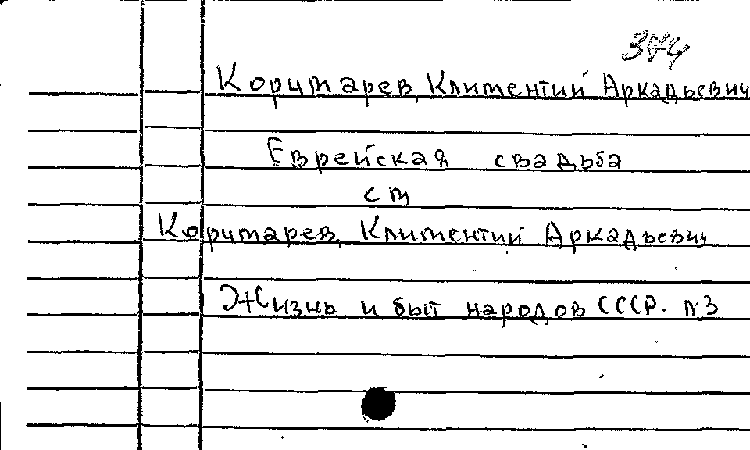 Корчмарев, Климентий Аркадьевич
Еврейская свадьба
см
Корчмарев, Климентий Аркадьевич
Жизнь и быт народов СССР. N3